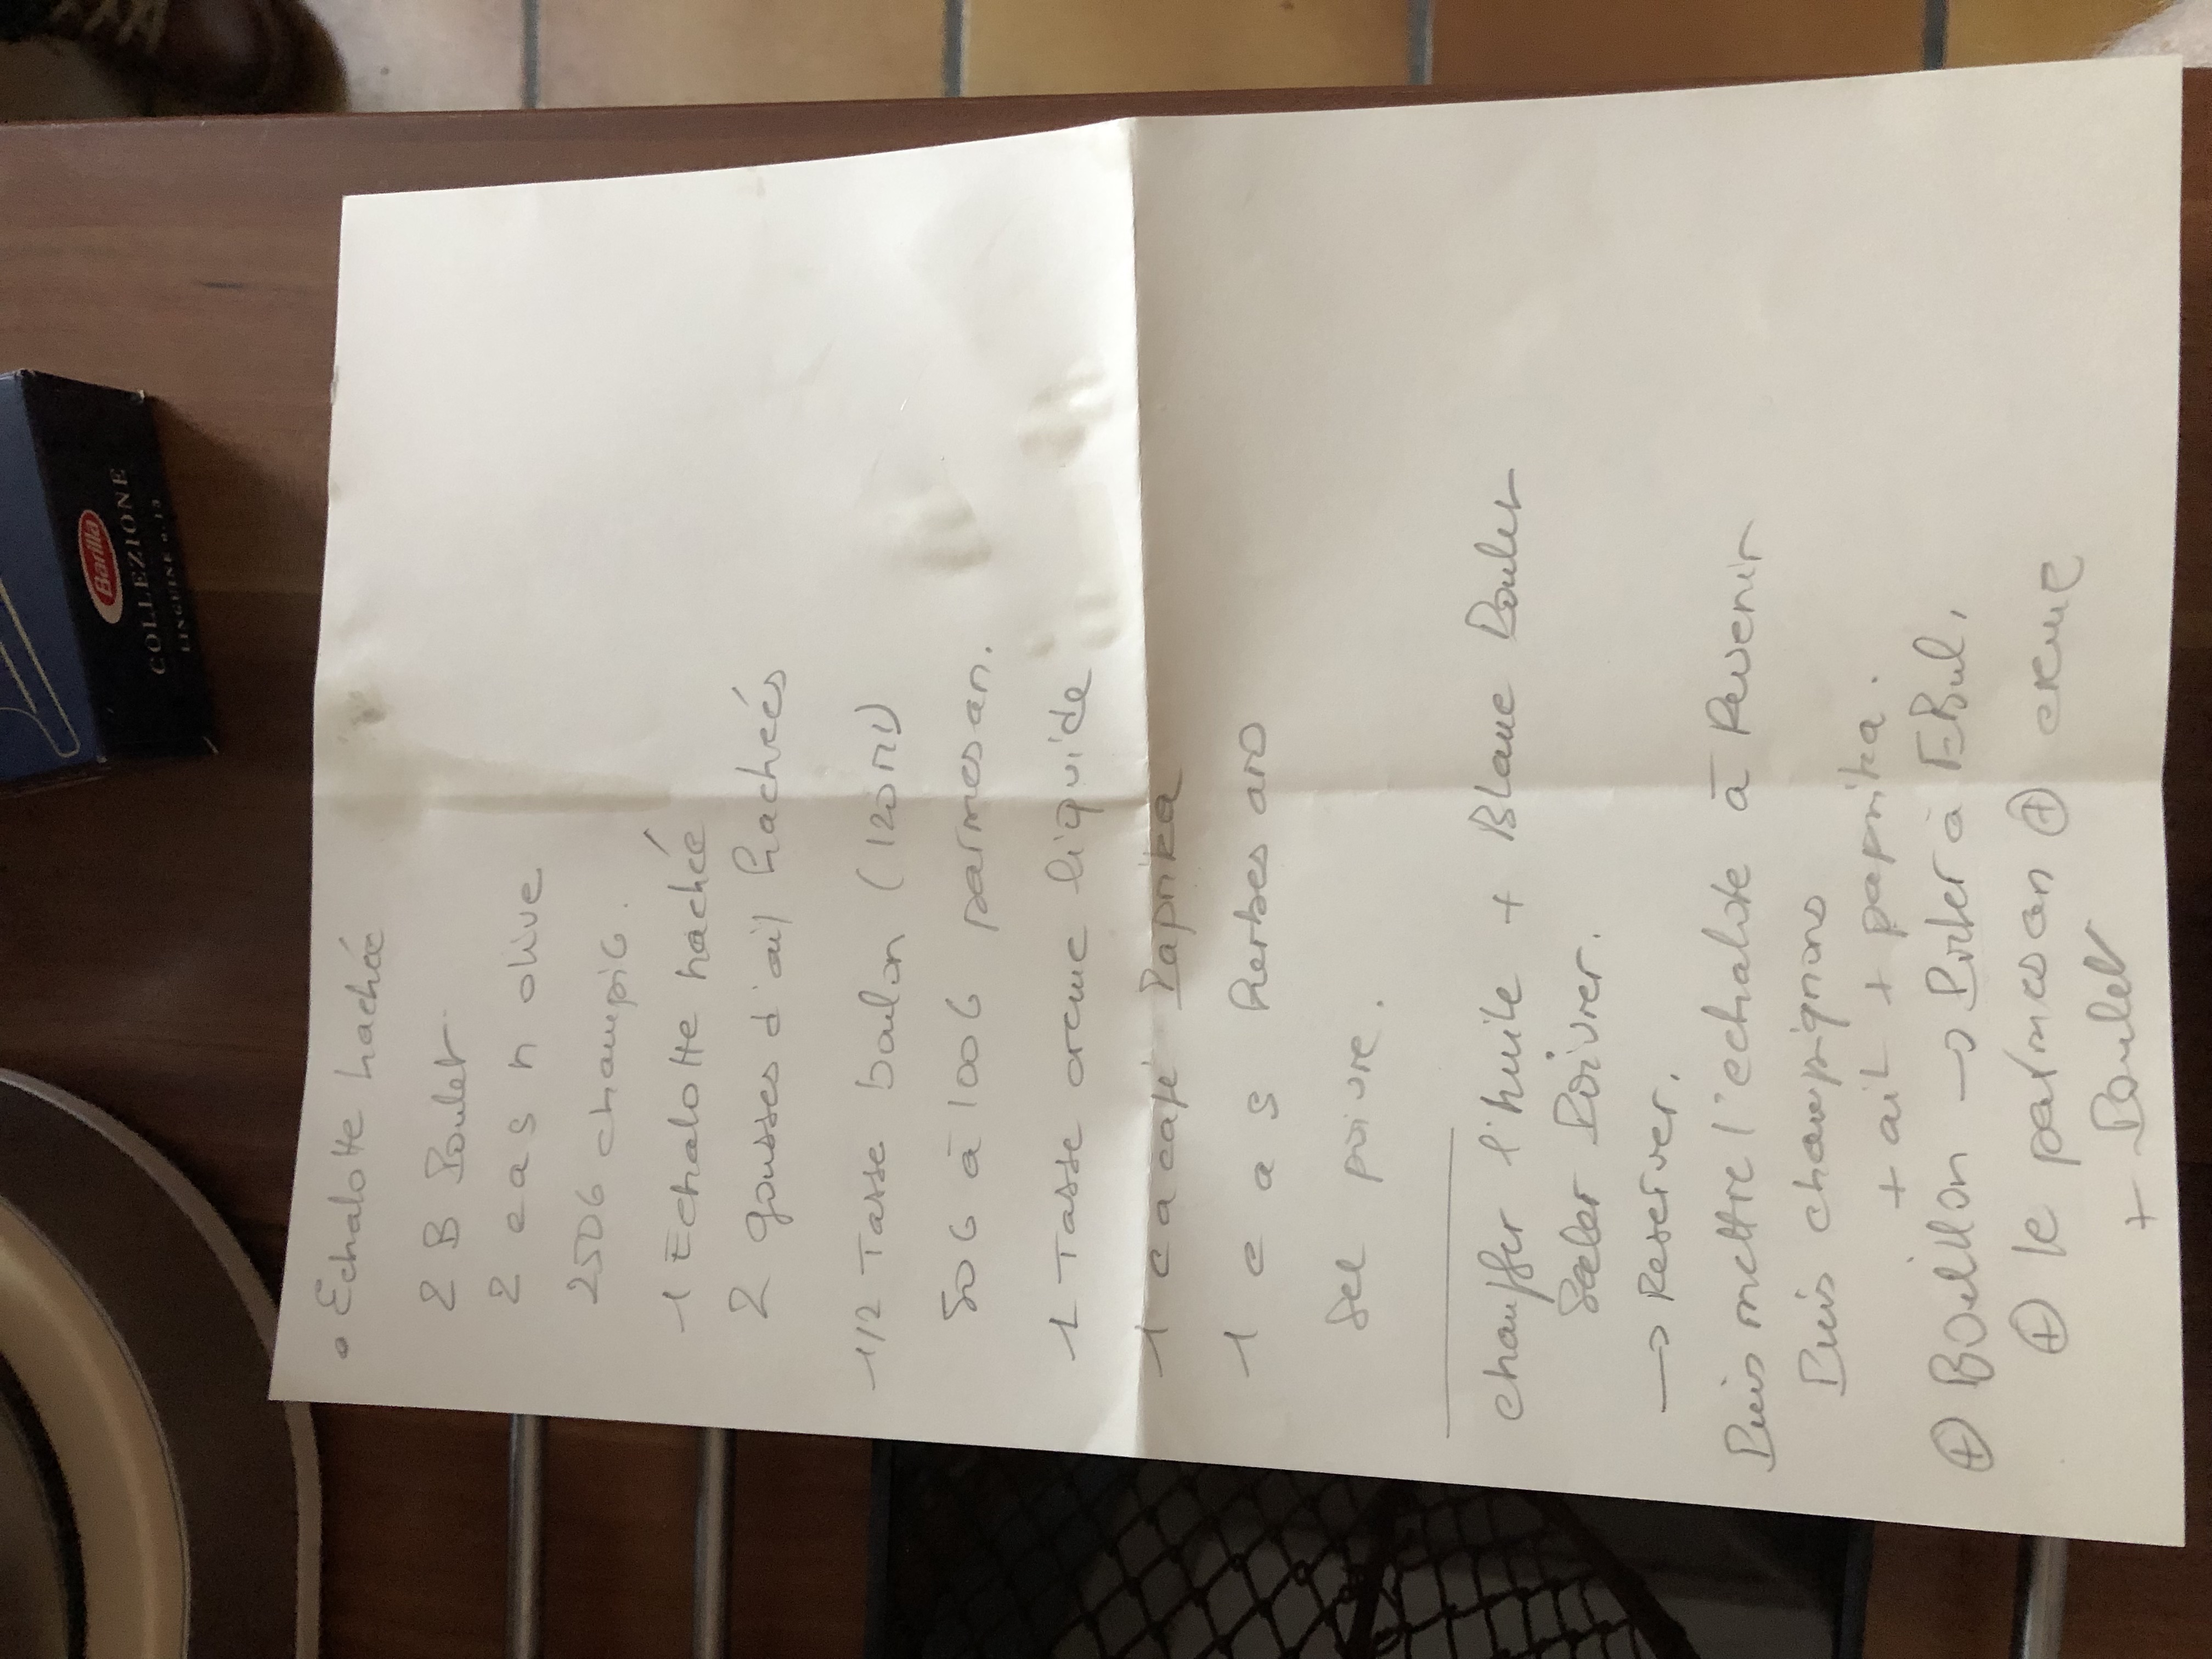 • Echalotte hachée
2 B Poulet
2 cas h olive
250G champig.
1 Echalotte hachée
2 gousses d'ail hachées
1/2 Tasse boulon (120ml)
50G à 100G parmesan.
1 Tasse creme liquide
1 c a café Paprika
1 c a s herbes aro
Sel poivre.
chauffer l'huile + Blanc Poulet
Saler Poivrer.
→ Reserver.
Puis mettre l'echalote à Revenir
Puis champignons
+ ail + paprika.
⊕ Bouillon → Porter à EBul.
⊕ le parmesan ⊕ creme
+ Poulet
Barilla
COLLEZIONE
LINGUINE n.13